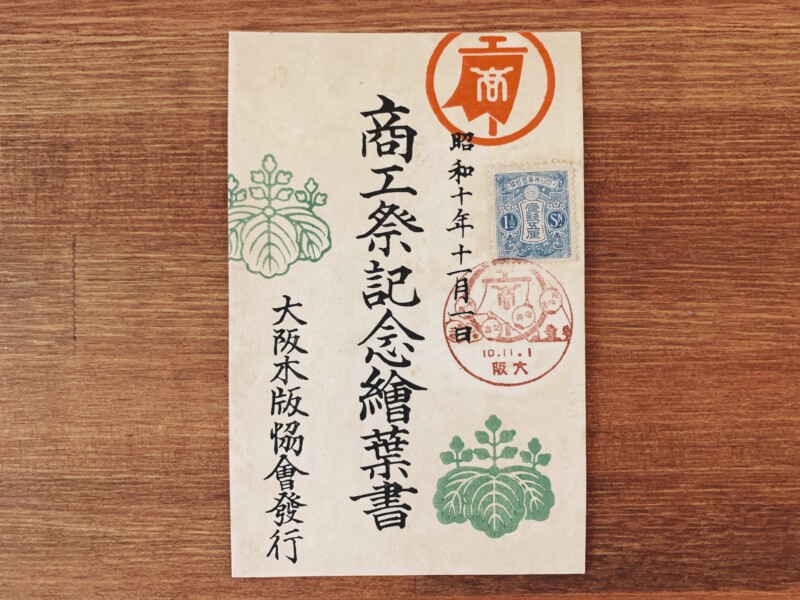 工
商
昭和十年十一月一日
商工祭記念繪葉書
大阪木版協會發行
壹錢五厘
1½ Sn
10.11.1
大阪